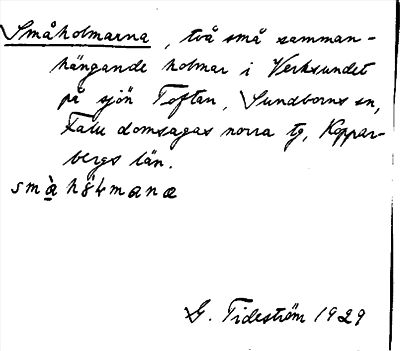 Småholmarna, två små samman-
hängande holmar i Verksundet
på sjön Toftan, Sundborns sn,
Falu domsagas norra tg, Koppar-
bergs län.
småhölmana
G. Tideström 1929